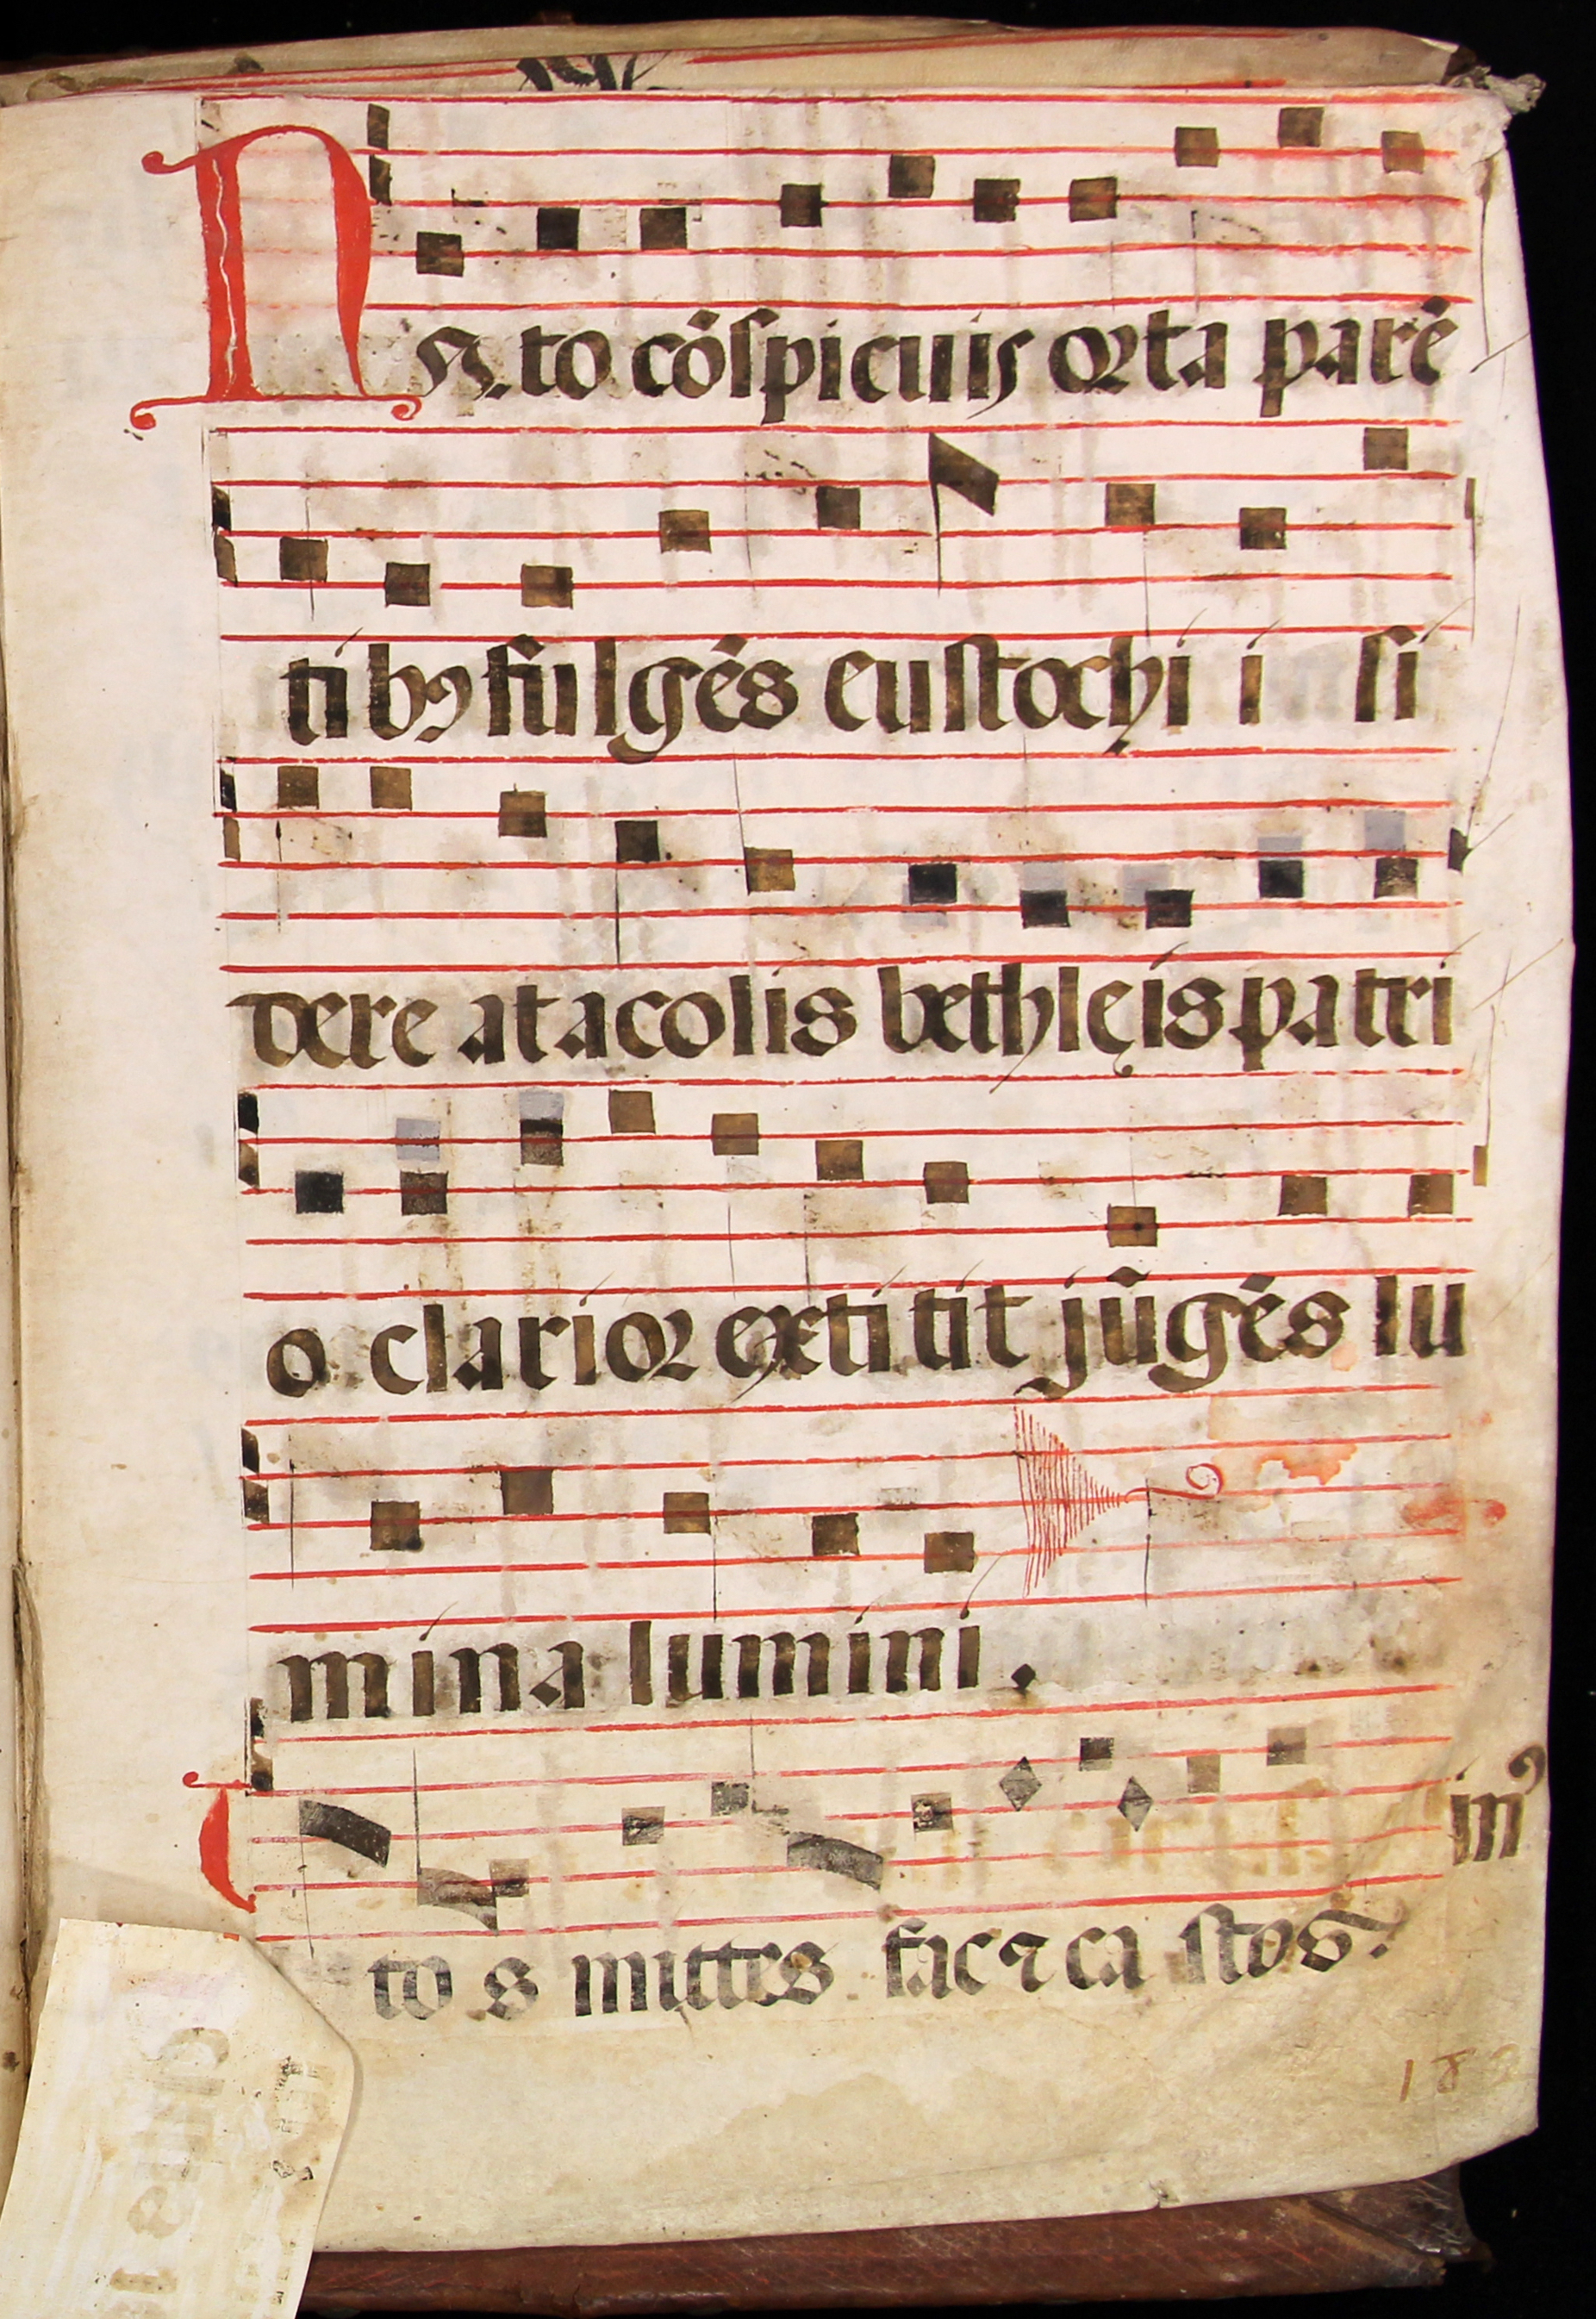 Nato cõspicuis orta parẽ
tibꝯ fulgẽs eustochii si
dere at acolis bethlęis patri
o clarior extitit jũgẽs lu
mina lumini.
to s mittes fac ⁊ ca stos. in
18